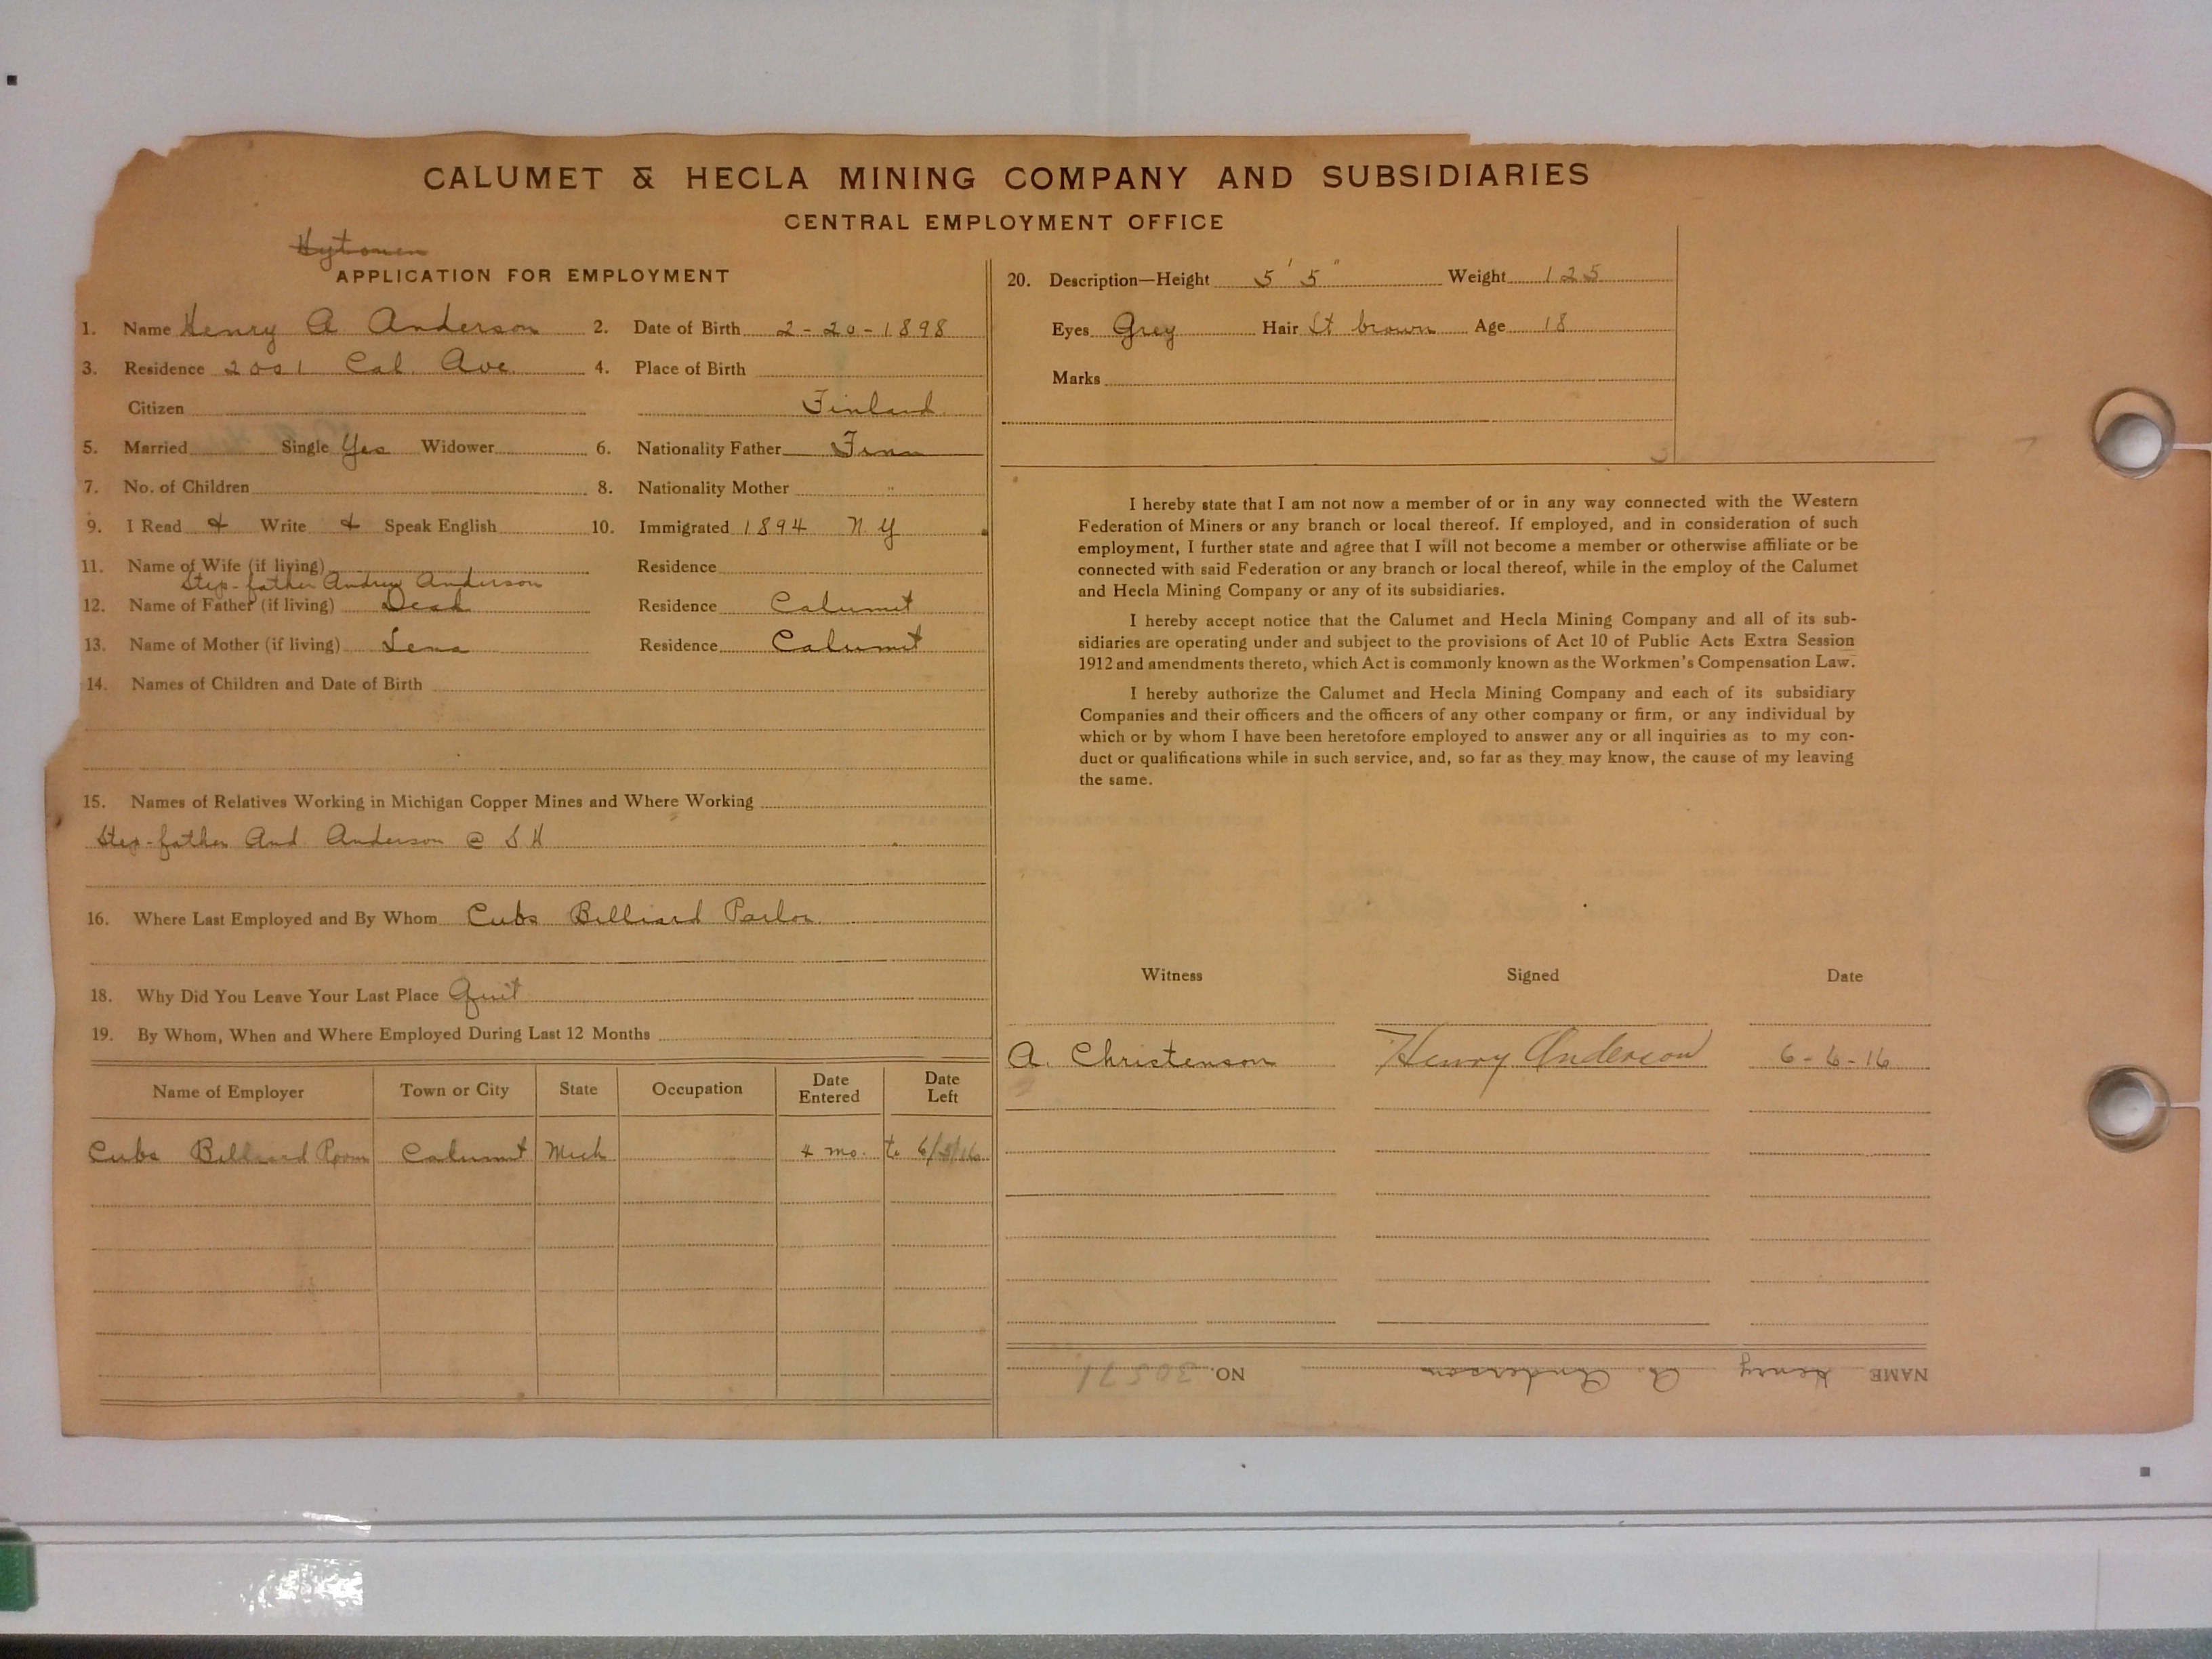 CALUMET & HECLA MINING COMPANY AND SUBSIDIARIES
CENTRAL EMPLOYMENT OFFICE
Hytonen
APPLICATION FOR EMPLOYMENT
1. Name Henry A Anderson 2. Date of Birth 2-20-1898
3. Residence 2001 Cal. Ave. 4. Place of Birth
Citizen Finland
5. Married Single Yes Widower 6. Nationality Father Finn
7. No. of Children 8. Nationality Mother "
9. I Read & Write & Speak English 10. Immigrated 1894 N. Y
11. Name of Wife (if living) Residence
Step-father Andrew Anderson
12. Name of Father (if living) Dead Residence Calumet
13. Name of Mother (if living) Lena Residence Calumet
14. Names of Children and Date of Birth
15. Names of Relatives Working in Michigan Copper Mines and Where Working
Step-father And Anderson @ S H
16. Where Last Employed and By Whom Cubs Billiard Parlor
18. Why Did You Leave Your Last Place Quit
19. By Whom, When and Where Employed During Last 12 Months
Name of Employer Town or City State Occupation Date Entered Date Left
Cubs Billiard Room Calumet Mich 4 mo. to 6/5/16
20. Description—Height 5' 5" Weight 125
Eyes Grey Hair Lt brown Age 18
Marks
I hereby state that I am not now a member of or in any way connected with the Western
Federation of Miners or any branch or local thereof. If employed, and in consideration of such
employment, I further state and agree that I will not become a member or otherwise affiliate or be
connected with said Federation or any branch or local thereof, while in the employ of the Calumet
and Hecla Mining Company or any of its subsidiaries.
I hereby accept notice that the Calumet and Hecla Mining Company and all of its sub-
sidiaries are operating under and subject to the provisions of Act 10 of Public Acts Extra Session
1912 and amendments thereto, which Act is commonly known as the Workmen's Compensation Law.
I hereby authorize the Calumet and Hecla Mining Company and each of its subsidiary
Companies and their officers and the officers of any other company or firm, or any individual by
which or by whom I have been heretofore employed to answer any or all inquiries as to my con-
duct or qualifications while in such service, and, so far as they may know, the cause of my leaving
the same.
Witness Signed Date
A. Christenson Henry Anderson 6-6-16
NAME Henry A. Anderson NO. 30571